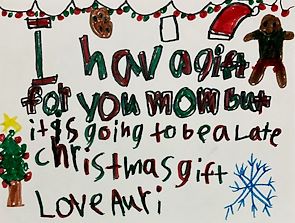 I hav a gift
for you mom but
it is going to be a Late
christmas gift
Love Auri